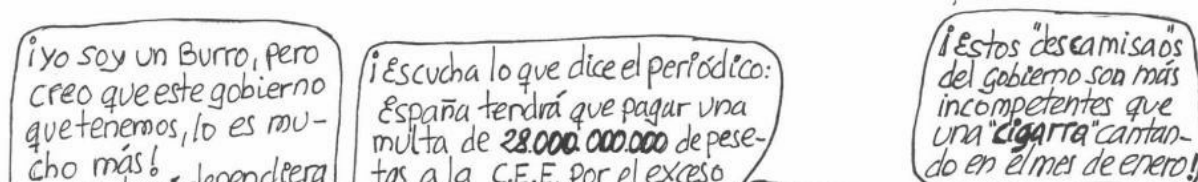 ¡Yo soy un Burro, pero
creo que este gobierno
que tenemos, lo es mu-
cho más!
dependiera
¡Escucha lo que dice el periódico:
España tendrá que pagar una
multa de 28.000.000.000 de pese-
tas a la C.E.E. por el exceso
¡Estos "descamisaos"
del gobierno son más
incompetentes que
una "cigarra" cantan-
do en el mes de enero!